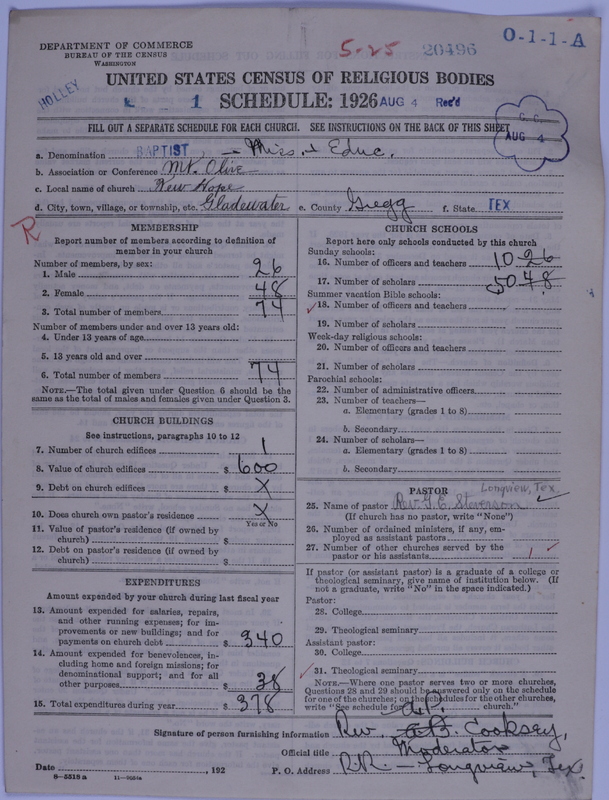 DEPARTMENT OF COMMERCE
BUREAU OF THE CENSUS
WASHINGTON
5-25 20496 O-1-1-A
HOLLEY
UNITED STATES CENSUS OF RELIGIOUS BODIES
1 SCHEDULE: 1926 AUG 4 Rec'd
FILL OUT A SEPARATE SCHEDULE FOR EACH CHURCH. SEE INSTRUCTIONS ON THE BACK OF THIS SHEET
G. C.
AUG 4
a. Denomination BAPTIST, - Miss. & Educ.
b. Association or Conference Mt. Olive
c. Local name of church New Hope
d. City, town, village, or township, etc. Gladewater e. County Gregg f. State TEX
R
MEMBERSHIP
Report number of members according to definition of
member in your church
Number of members, by sex:
1. Male 26
2. Female 48
3. Total number of members 74
Number of members under and over 13 years old:
4. Under 13 years of age
5. 13 years old and over
6. Total number of members 74
NOTE.—The total given under Question 6 should be the
same as the total of males and females given under Question 3.
CHURCH BUILDINGS
See instructions, paragraphs 10 to 12
7. Number of church edifices 1
8. Value of church edifices $ 600
9. Debt on church edifices $ X
10. Does church own pastor's residence X
Yes or No
11. Value of pastor's residence (if owned by
church) $
12. Debt on pastor's residence (if owned by
church) $
EXPENDITURES
Amount expended by your church during last fiscal year
13. Amount expended for salaries, repairs,
and other running expenses; for im-
provements or new buildings; and for
payments on church debt $ 340
14. Amount expended for benevolences, in-
cluding home and foreign missions; for
denominational support; and for all
other purposes $ 38
15. Total expenditures during year $ 378
CHURCH SCHOOLS
Report here only schools conducted by this church
Sunday schools:
16. Number of officers and teachers 10 26
17. Number of scholars 50 48
Summer vacation Bible schools:
18. Number of officers and teachers
19. Number of scholars
Week-day religious schools:
20. Number of officers and teachers
21. Number of scholars
Parochial schools:
22. Number of administrative officers
23. Number of teachers—
a. Elementary (grades 1 to 8)
b. Secondary
24. Number of scholars—
a. Elementary (grades 1 to 8)
b. Secondary
PASTOR Longview, Tex
25. Name of pastor Rev. G. E. Steverson
(If church has no pastor, write "None")
26. Number of ordained ministers, if any, em-
ployed as assistant pastors
27. Number of other churches served by the
pastor or his assistants 1
If pastor (or assistant pastor) is a graduate of a college or
theological seminary, give name of institution below. (If
not a graduate, write "No" in the space indicated.)
Pastor:
28. College
29. Theological seminary
Assistant pastor:
30. College
31. Theological seminary
NOTE.—Where one pastor serves two or more churches,
Questions 28 and 29 should be answered only on the schedule
for one of the churches; on the schedules for the other churches,
write "See schedule for church."
Signature of person furnishing information Rev. A.P. Cooksey,
Official title Moderator
Date , 192 P. O. Address R.R. - Longview, Tex.
8-5518a 11-9054a